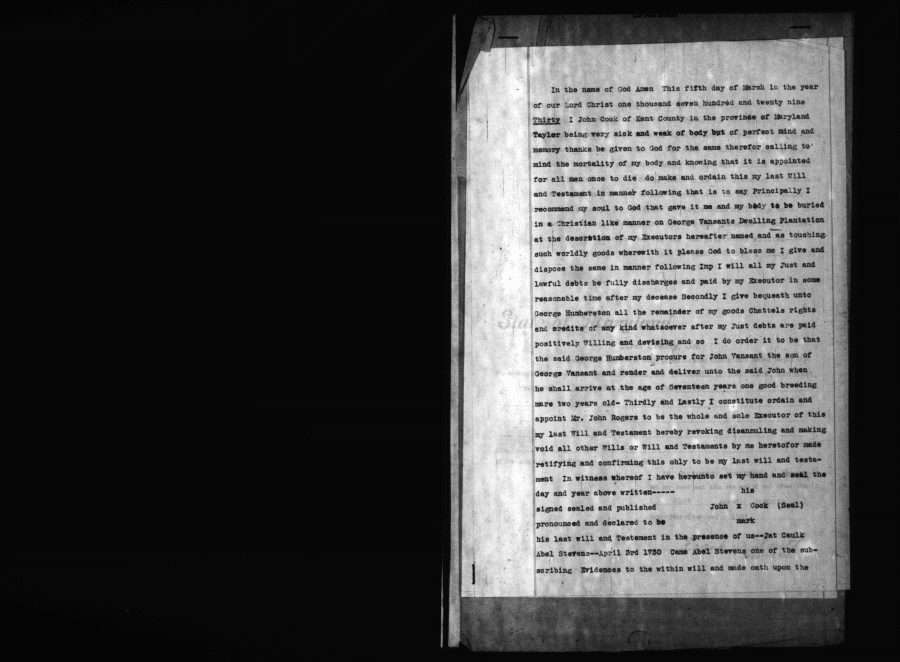 In the name of God Amen This fifth day of March in the year
of our Lord Christ one thousand seven hundred and twenty nine
Thirty I John Cook of Kent County in the province of Maryland
Taylor being very sick and weak of body but of perfect mind and
memory thanks be given to God for the same therefor calling to
mind the mortality of my body and knowing that it is appointed
for all men once to die do make and ordain this my last Will
and Testament in manner following that is to say Principally I
recommend my soul to God that gave it me and my body to be buried
in a Christian like manner on George Vansants Dwelling Plantation
at the descretion of my Executors hereafter named and as touching
such worldly goods wherewith it please God to bless me I give and
dispose the same in manner following Imp I will all my Just and
lawful debts be fully discharges and paid by my Executor in some
reasonable time after my decease Secondly I give bequeath unto
George Humberston all the remainder of my goods Chattels rights
and credits of any kind whatsoever after my Just debts are paid
positively Willing and devising and so I do order it to be that
the said George Humberston procure for John Vansant the son of
George Vansant and render and deliver unto the said John when
he shall arrive at the age of Seventeen years one good breeding
mare two years old- Thirdly and Lastly I constitute ordain and
appoint Mr. John Rogers to be the whole and sole Executor of this
my last Will and Testament hereby revoking disannuling and making
void all other Wills or Will and Testaments by me heretofor made
retifying and confirming this ohly to be my last will and testa-
ment In witness whereof I have hereunto set my hand and seal the
day and year above written----- his
signed sealed and published John x Cook (Seal)
pronounced and declared to be mark
his last will and Testement in the presence of us--Jat Caulk
Abel Stevens--April 3rd 1730 Came Abel Stevens one of the sub-
scribing Evidences to the within will and made oath upon the